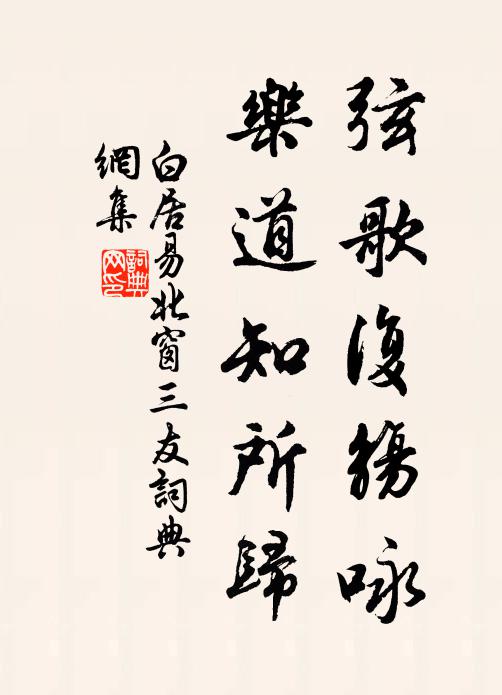 弦歌復觴咏
樂道知所歸
白居易北窗三友詞典
網集
詞典网印